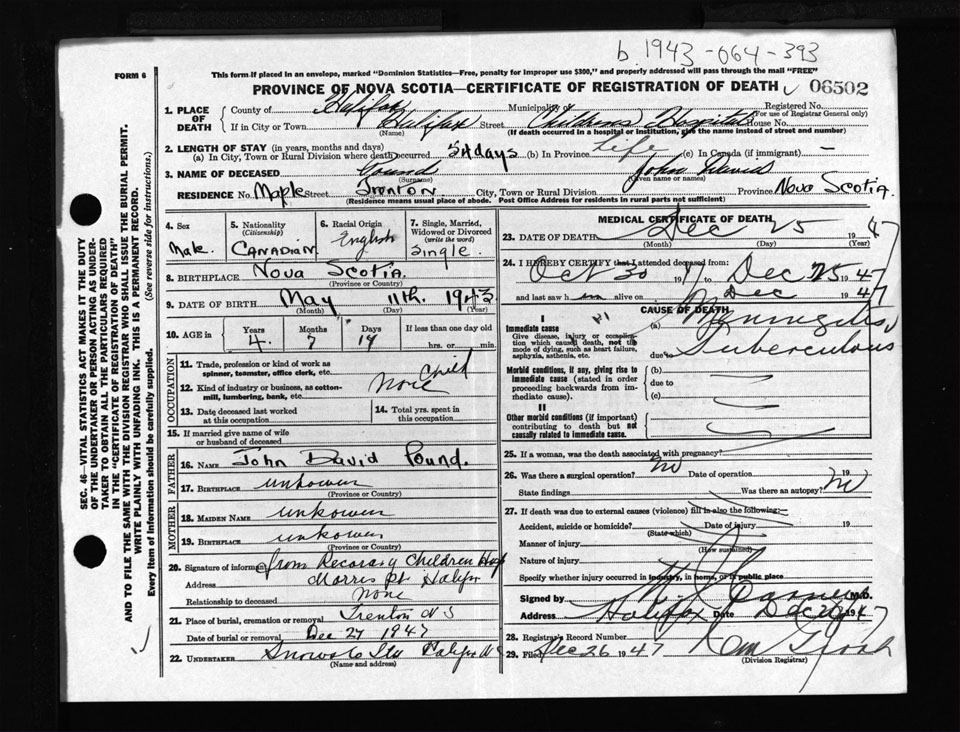 b. 1943-064-393
FORM 6
This form if placed in an envelope, marked "Dominion Statistics—Free, penalty for improper use $300," and properly addressed will pass through the mail "FREE"
PROVINCE OF NOVA SCOTIA—CERTIFICATE OF REGISTRATION OF DEATH 06502
1. PLACE OF DEATH County of Halifax Municipality of Registered No. (For use of Registrar General only)
If in City or Town Halifax Street Childrens Hospital House No.
(Name) (If death occurred in a hospital or institution, give the name instead of street and number)
2. LENGTH OF STAY (in years, months and days)
(a) In City, Town or Rural Division where death occurred 54 days (b) In Province Life (c) In Canada (if immigrant) —
3. NAME OF DECEASED Pound John David
(Surname) (Given name or names)
RESIDENCE No. Maple Street Trenton City, Town or Rural Division Province Nova Scotia.
(Residence means usual place of abode. Post Office Address for residents in rural parts not sufficient)
4. Sex Male.
5. Nationality (Citizenship) CANADIAN
6. Racial Origin English
7. Single, Married, Widowed or Divorced (write the word) Single.
8. BIRTHPLACE Nova Scotia.
(Province or Country)
9. DATE OF BIRTH May 11th. 1943
(Month) (Day) (Year)
10. AGE in Years 4. Months 7 Days 14 If less than one day old hrs. or min.
OCCUPATION
11. Trade, profession or kind of work as spinner, teamster, office clerk, etc. Child
12. Kind of industry or business, as cotton-mill, lumbering, bank, etc. None
13. Date deceased last worked at this occupation
14. Total yrs. spent in this occupation
15. If married give name of wife or husband of deceased
FATHER
16. Name John David Pound.
17. Birthplace unkowen
(Province or Country)
MOTHER
18. Maiden Name unkowen
19. Birthplace unkowen
(Province or Country)
20. Signature of informant from Records Children Hosp
Address Morris St Halifax
Relationship to deceased none
21. Place of burial, cremation or removal Trenton N S
Date of burial or removal Dec 27 1947
22. UNDERTAKER Snows Co Ltd Halifax N S
(Name and address)
MEDICAL CERTIFICATE OF DEATH
23. DATE OF DEATH Dec 25 19
(Month) (Day) (Year)
24. I HEREBY CERTIFY that I attended deceased from:
Oct 30 to Dec 25 1947
and last saw h im alive on Dec 1947
CAUSE OF DEATH
I
Immediate cause
Give disease, injury or complication which caused death, not the mode of dying, such as heart failure, asphyxia, asthenia, etc.
(a) Meningitis
due to Tuberculous
Morbid conditions, if any, giving rise to immediate cause (stated in order proceeding backwards from immediate cause).
(b)
due to
(c)
II
Other morbid conditions (if important) contributing to death but not causally related to immediate cause.
25. If a woman, was the death associated with pregnancy?
26. Was there a surgical operation? no Date of operation 19
State findings Was there an autopsy? no
27. If death was due to external causes (violence) fill in also the following:—
Accident, suicide or homicide? Date of injury 19
(State which)
Manner of injury
(How sustained)
Nature of injury
Specify whether injury occurred in industry, in home, or in public place
Signed by M.D.
Address Halifax Date Dec 26 1947
28. Registrar's Record Number
29. Filed Dec 26 1947
(Division Registrar)
SEC. 46—VITAL STATISTICS ACT MAKES IT THE DUTY
OF THE UNDERTAKER OR PERSON ACTING AS UNDER-
TAKER TO OBTAIN ALL THE PARTICULARS REQUIRED
IN THE "CERTIFICATE OF REGISTRATION OF DEATH"
AND TO FILE THE SAME WITH THE DIVISION REGISTRAR WHO SHALL ISSUE THE BURIAL PERMIT.
WRITE PLAINLY WITH UNFADING INK. THIS IS A PERMANENT RECORD.
Every item of Information should be carefully supplied. (See reverse side for instructions.)